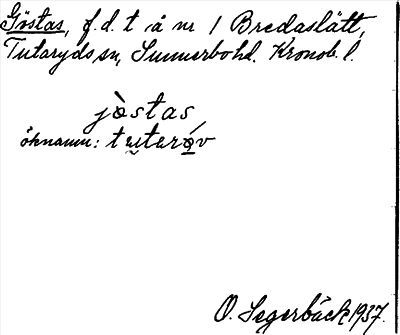 Göstas, f.d. t å nr 1 Bredaslätt,
Tutaryds sn, Sunnerbo hd. Kronob. l.
jòstas
öknamn: tutaráv
O. Segerbäck 1937.